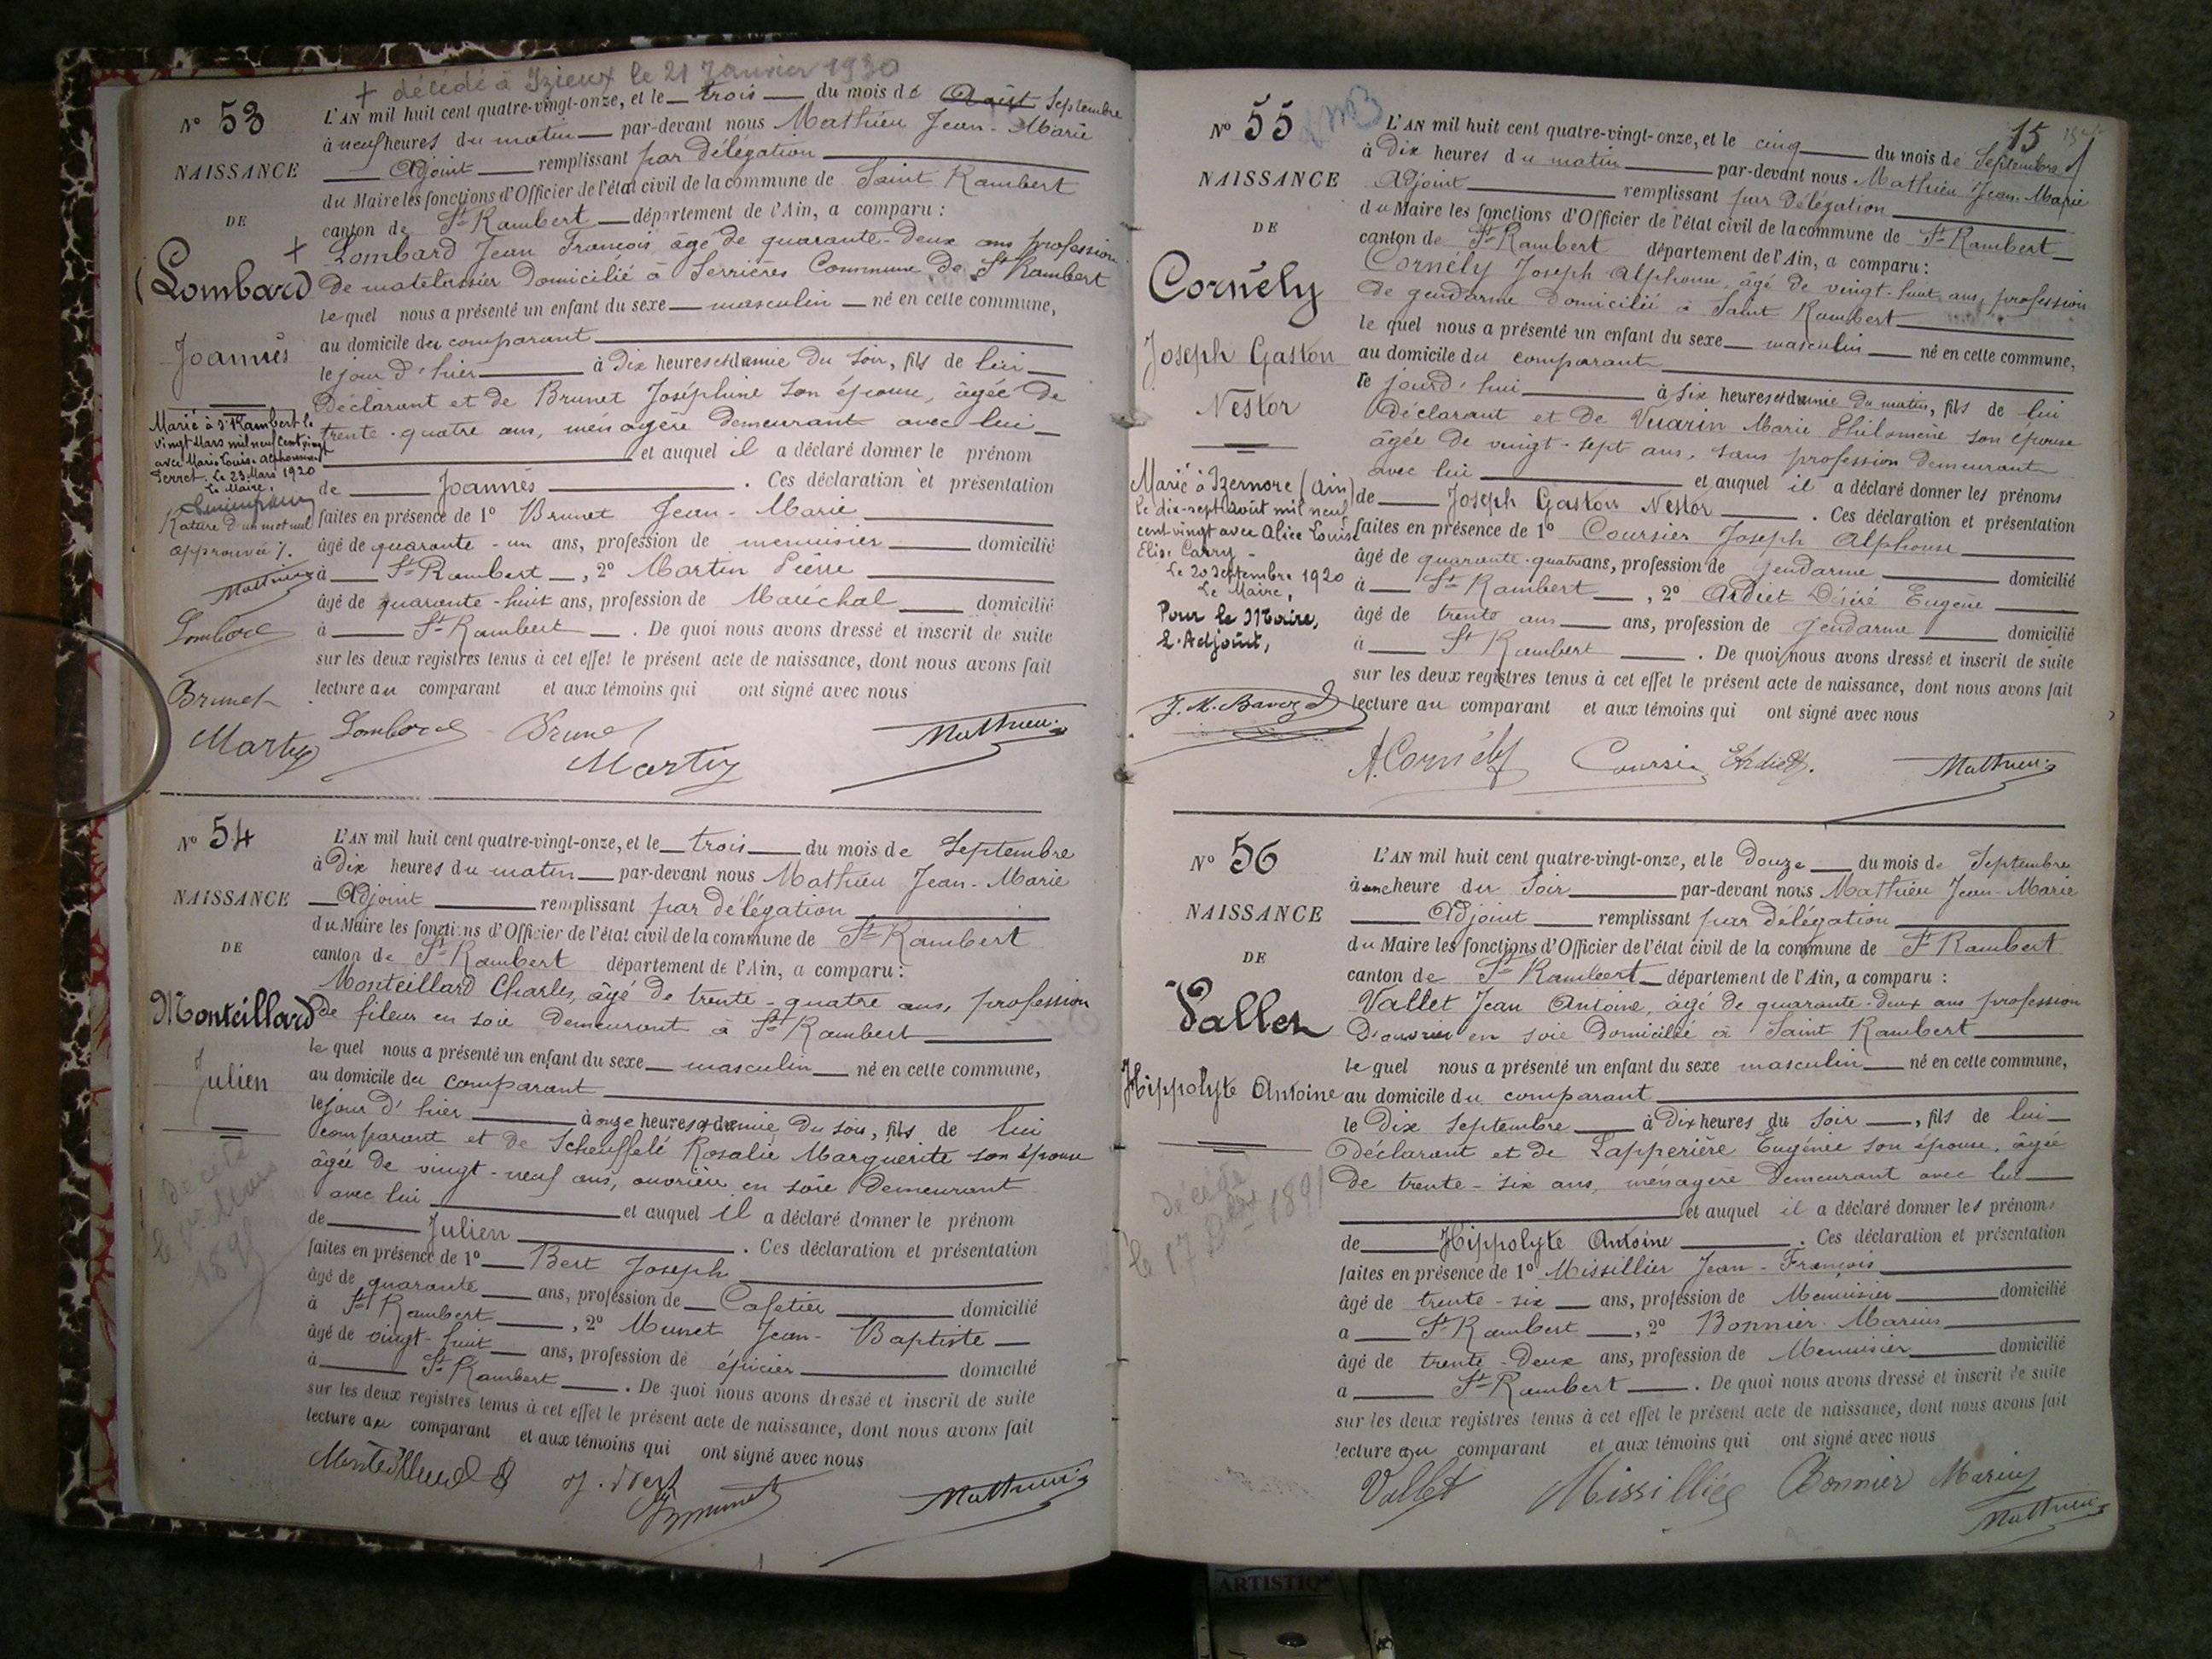 + décédé à Izieux le 21 Janvier 1930
N° 53
NAISSANCE
DE
Lombard
Joannès
Marié à St Rambert le
vingt Mars mil neuf cent vingt
avec Marie Louise Alphonsine
Perret. Le 23 Mars 1920
Le Maire,
Rature d'un mot nul
approuvée /.
Mathieu
Lombard
Brunet
Martin
L'AN mil huit cent quatre-vingt-onze, et le trois du mois de Août Septembre
à neuf heures du matin par-devant nous Mathieu Jean-Marie
Adjoint remplissant par délégation
du Maire les fonctions d'Officier de l'état civil de la commune de Saint Rambert
canton de St Rambert département de l'Ain, a comparu :
+ Lombard Jean François âgé de quarante-deux ans profession
de matelassier domicilié à Serrières Commune de St Rambert
lequel nous a présenté un enfant du sexe masculin né en cette commune,
au domicile du comparant
le jour d'hier à dix heures et demie du soir, fils de lui
déclarant et de Brunet Joséphine son épouse, âgée de
trente-quatre ans, ménagère demeurant avec lui
et auquel il a déclaré donner le prénom
de Joannès . Ces déclaration et présentation
faites en présence de 1° Brunet Jean-Marie
âgé de quarante-un ans, profession de menuisier domicilié
à St Rambert , 2° Martin Pierre
âgé de quarante-huit ans, profession de Maréchal domicilié
à St Rambert . De quoi nous avons dressé et inscrit de suite
sur les deux registres tenus à cet effet le présent acte de naissance, dont nous avons fait
lecture au comparant et aux témoins qui ont signé avec nous
Lombard Brunet Martin Mathieu
N° 54
NAISSANCE
DE
Monteillard
Julien
décédé
1891
L'AN mil huit cent quatre-vingt-onze, et le trois du mois de Septembre
à Dix heures du matin par-devant nous Mathieu Jean-Marie
Adjoint remplissant par délégation
du Maire les fonctions d'Officier de l'état civil de la commune de St Rambert
canton de St Rambert département de l'Ain, a comparu :
Monteillard Charles, âgé de trente-quatre ans, profession
de fileur en soie demeurant à St Rambert
lequel nous a présenté un enfant du sexe masculin né en cette commune,
au domicile du comparant
le jour d'hier à onze heures et demie du soir, fils de lui
comparant et de Scheuffelé Rosalie Marguerite son épouse
âgée de vingt-neuf ans, ouvrière en soie demeurant
avec lui et auquel il a déclaré donner le prénom
de Julien . Ces déclaration et présentation
faites en présence de 1° Bert Joseph
âgé de quarante ans, profession de Cafetier domicilié
à St Rambert , 2° Munet Jean-Baptiste
âgé de vingt-huit ans, profession de épicier domicilié
à St Rambert . De quoi nous avons dressé et inscrit de suite
sur les deux registres tenus à cet effet le présent acte de naissance, dont nous avons fait
lecture au comparant et aux témoins qui ont signé avec nous
Monteillard J. Bert Munet Mathieu
15
N° 55
NAISSANCE
DE
Cornély
Joseph Gaston
Nestor
Marié à Izernore (Ain)
le dix-sept Août mil neuf
cent vingt avec Alice Louise
Elise Carry
Le 20 Septembre 1920
Le Maire,
Pour le Maire,
L'Adjoint,
L'AN mil huit cent quatre-vingt-onze, et le cinq du mois de Septembre
à Dix heures du matin par-devant nous Mathieu Jean-Marie
Adjoint remplissant par délégation
du Maire les fonctions d'Officier de l'état civil de la commune de St Rambert
canton de St Rambert département de l'Ain, a comparu :
Cornély Joseph Alphonse, âgé de vingt-huit ans, profession
de gendarme domicilié à Saint Rambert
lequel nous a présenté un enfant du sexe masculin né en cette commune,
au domicile du comparant
le jourd'hui à six heures et demie du matin, fils de lui
déclarant et de Vuarin Marie Philomène son épouse
âgée de vingt-sept ans, sans profession demeurant
avec lui et auquel il a déclaré donner les prénoms
de Joseph Gaston Nestor . Ces déclaration et présentation
faites en présence de 1° Coursier Joseph Alphonse
âgé de quarante-quatre ans, profession de gendarme domicilié
à St Rambert , 2° Ardiet Désiré Eugène
âgé de trente ans ans, profession de gendarme domicilié
à St Rambert . De quoi nous avons dressé et inscrit de suite
sur les deux registres tenus à cet effet le présent acte de naissance, dont nous avons fait
lecture au comparant et aux témoins qui ont signé avec nous
A. Cornély Coursier Ardiet Mathieu
N° 56
NAISSANCE
DE
Vallet
Hippolyte Antoine
décédé
le 17 1891
L'AN mil huit cent quatre-vingt-onze, et le douze du mois de Septembre
à une heure du soir par-devant nous Mathieu Jean-Marie
Adjoint remplissant par délégation
du Maire les fonctions d'Officier de l'état civil de la commune de St Rambert
canton de St Rambert département de l'Ain, a comparu :
Vallet Jean Antoine, âgé de quarante-deux ans profession
d'ouvrier en soie domicilié à Saint Rambert
lequel nous a présenté un enfant du sexe masculin né en cette commune,
au domicile du comparant
le dix Septembre à dix heures du soir , fils de lui
déclarant et de Lapperière Eugénie son épouse, âgée
de trente-six ans, ménagère demeurant avec lui
et auquel il a déclaré donner les prénoms
de Hippolyte Antoine . Ces déclaration et présentation
faites en présence de 1° Missillier Jean-François
âgé de trente-six ans, profession de Menuisier domicilié
à St Rambert , 2° Bonnier Marius
âgé de trente-Deux ans, profession de Menuisier domicilié
à St Rambert . De quoi nous avons dressé et inscrit de suite
sur les deux registres tenus à cet effet le présent acte de naissance, dont nous avons fait
lecture au comparant et aux témoins qui ont signé avec nous
Vallet Missillier Bonnier Marius Mathieu